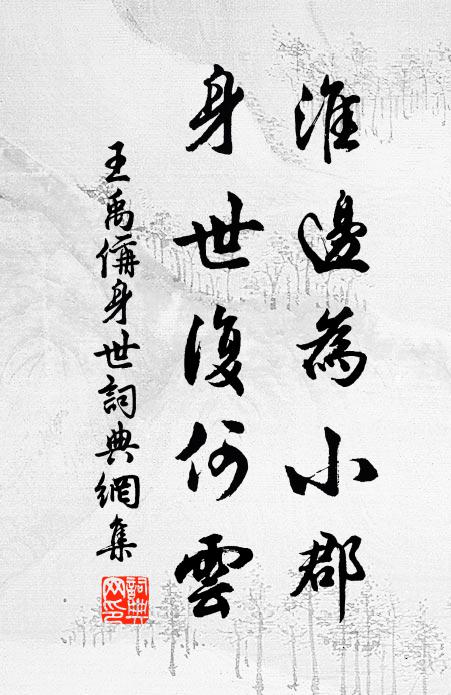 淮邊為小郡
身世復何雲
王禹偁身世詞典網集